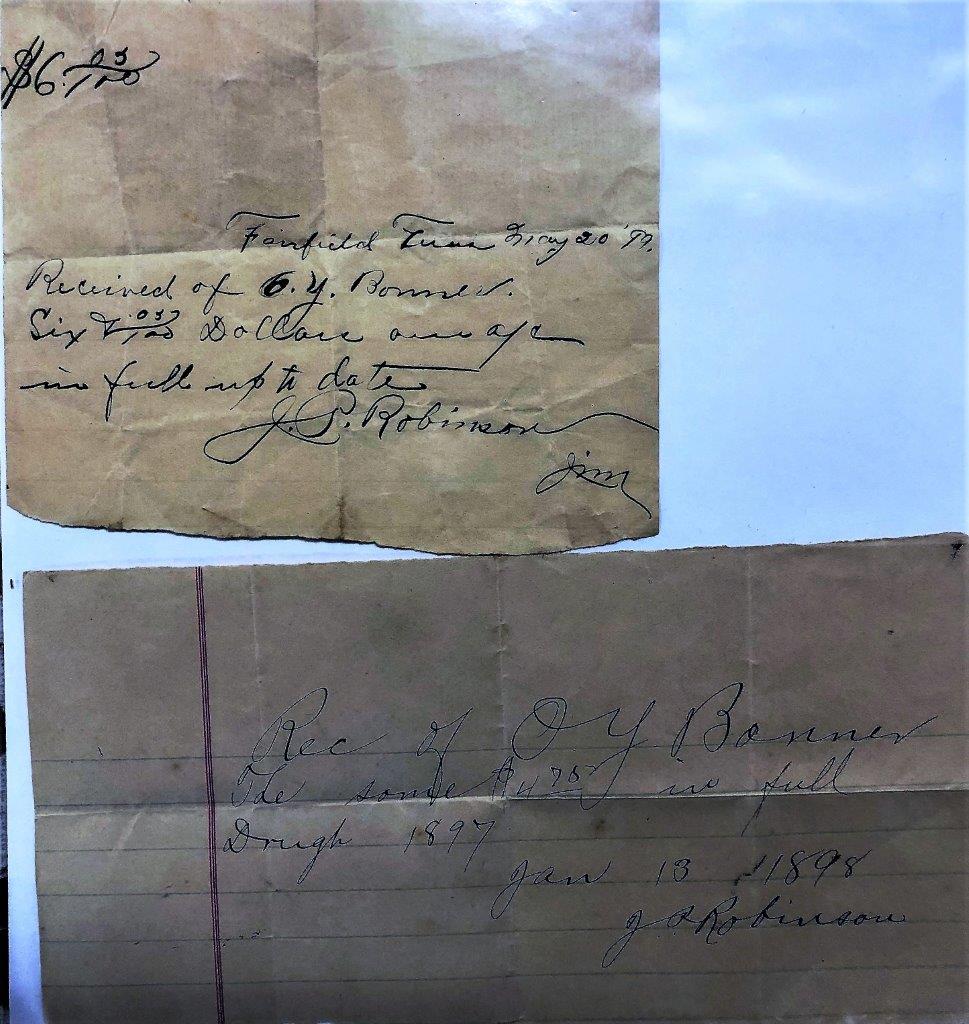 $6. 03/100
Fairfield Tenn May 20
Received of O. Y. Bonner.
Six & 03/100 Dollars on a/c
in full up to date
J. P. Robinson
Jim
Rec of O Y Bonner
The some of $4 75 in full
Drugh 1897
Jan 13 1898
J P Robinson